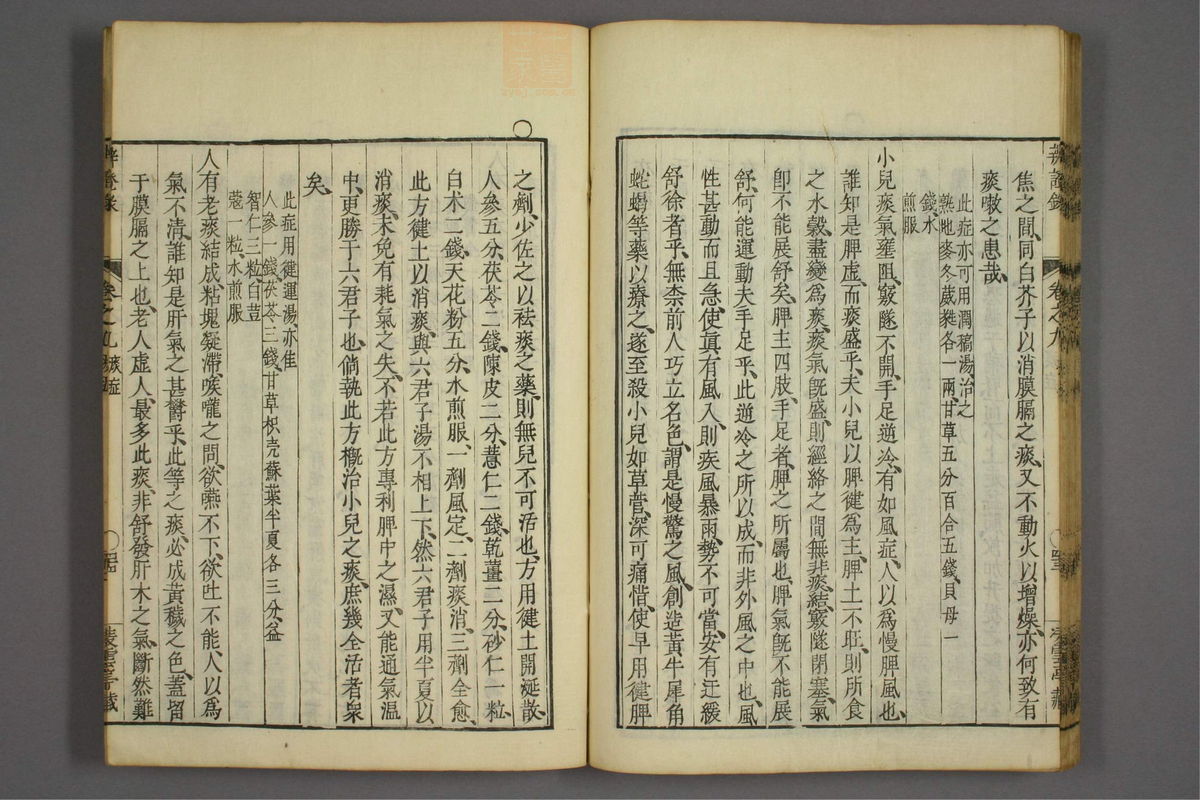 焦之間同白芥子以消膜膈之痰又不動火以增燥亦何致有
痰嗽之患哉
此症亦可用潤稿湯治之
熟地麥冬葳蕤各一兩甘草五分百合五錢貝母一
錢水
煎服
小兒痰氣壅阻竅隧不開手足逆冷有如風症人以爲慢脾風也
誰知是脾虛而痰盛乎夫小兒以脾健爲主脾土不旺則所食
之水穀盡變爲痰痰氣旣盛則經絡之間無非痰結竅隧閉塞氣
卽不能展舒矣脾主四肢手足者脾之所屬也脾氣旣不能展
舒何能運動夫手足乎此逆冷之所以成而非外風之中也風
性甚動而且急使眞有風入則疾風暴雨勢不可當安有迂緩
舒徐者乎無柰前人巧立名色謂是慢驚之風創造黃牛犀角
蛇蝎等藥以療之遂至殺小兒如草菅深可痛惜使早用健脾
之劑少佐之以祛痰之藥則無兒不可活也方用健土開涎散
人參五分茯苓二錢陳皮二分薏仁二錢乾薑二分砂仁一粒
白术二錢天花粉五分水煎服一劑風定二劑痰消三劑全愈
此方健土以消痰與六君子湯不相上下然六君子用半夏以
消痰未免有耗氣之失不若此方專利脾中之濕又能通氣温
中更勝于六君子也倘執此方概治小兒之痰庶幾全活者衆
矣
此症用健運湯亦佳
人參一錢茯苓三錢甘草枳壳蘇葉半夏各三分益
智仁三粒白荳
蔻一粒水煎服
人有老痰結成粘塊凝滯喉嚨之間欲嚥不下欲吐不能人以爲
氣不清誰知是肝氣之甚鬱乎此等之痰必成黃穢之色蓋留
于膜膈之上也老人虛人最多此痰非舒發肝木之氣斷然難
卷之九
卷之九 痰症